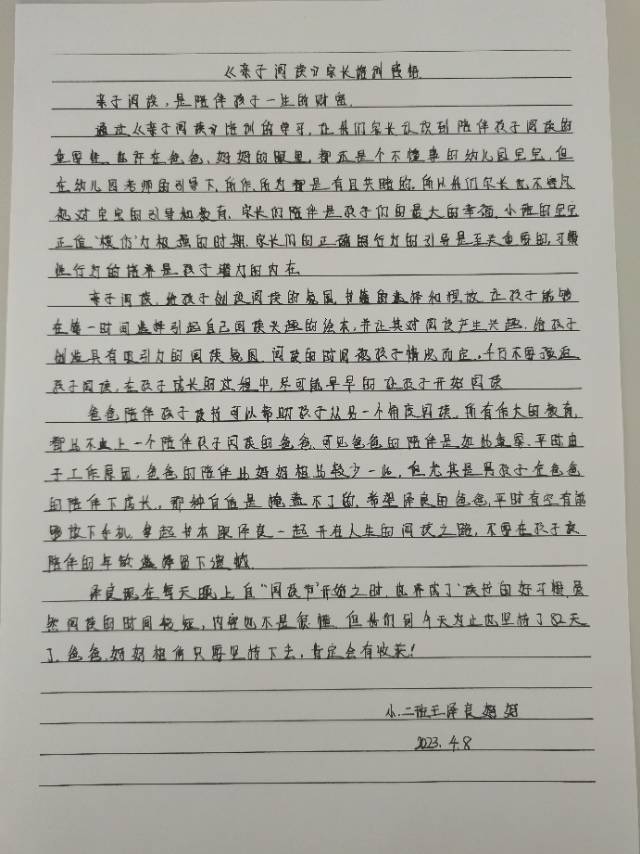 《亲子阅读》家长培训感悟
亲子阅读,是陪伴孩子一生的财富.
通过《亲子阅读》培训的学习,让我们家长认识到陪伴孩子阅读的
重要性.也许在爸爸、妈妈的眼里,都还是个不懂事的幼儿园宝宝,但
在幼儿园老师的引导下,所作所为都是有目共睹的,所以我们家长也不要忽
视对宝宝的引导和教育.家长们陪伴是孩子们的最大的幸福.小班的宝宝
正值"模仿"力极强的时期.家长们的正确的行为的引导是至关重要的,习惯
性行为的培养是孩子潜力的内在.
亲子阅读,给孩子创设阅读的氛围,书籍的选择和摆放,让孩子能够
在第一时间选择引起自己阅读兴趣的绘本,并让其对阅读产生兴趣.给孩子
创造具有吸引力的阅读氛围.阅读的时间视孩子情况而定,千万不要强迫
孩子阅读,在孩子成长的过程中,尽可能早早的让孩子开始阅读
爸爸陪伴孩子读书可以帮助孩子从另一个角度阅读.所有伟大的教育,
都比不上一个陪伴孩子阅读的爸爸.可见爸爸的陪伴是如此重要.平时由
于工作原因,爸爸的陪伴比妈妈相比较少一些,但尤其是男孩子在爸爸
的陪伴下成长,那种自信是掩盖不了的,希望泽良的爸爸,平时有空有能
够放下手机,拿起书本跟泽良一起开在人生的阅读之路,不要在孩子最
陪伴的年龄选择留下遗憾.
泽良现在每天晚上自"阅读节"开始之时,也养成了读书的好习惯,虽
然阅读的时间较短,内容也不是很懂.但我们到今天为止也坚持了82天
了.爸爸、妈妈相信只要坚持下去,肯定会有收获!
小二班王泽良妈妈
2023.4.8